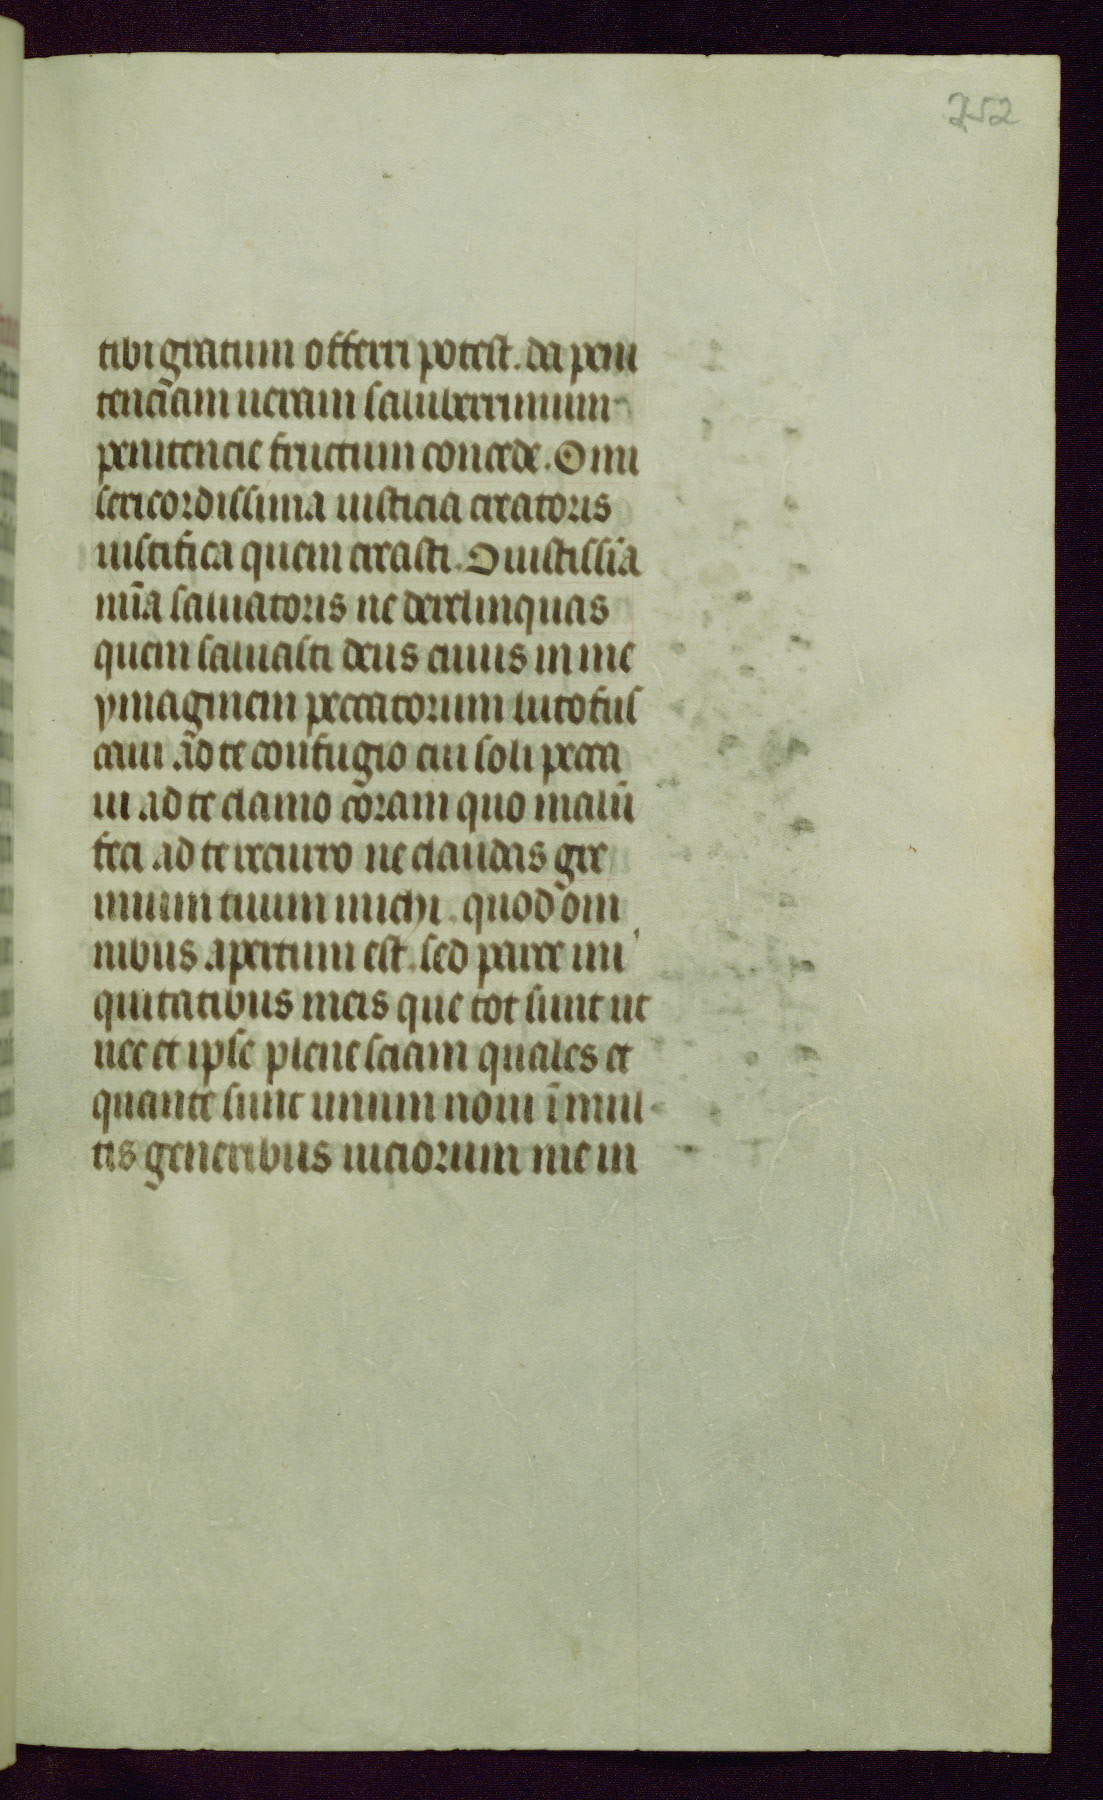 252
tibi gratum offerri potest. da peni
tenciam ueram saluberrimum
penitencie fructum concede. O mi
sericordissima iusticia creatoris
iustifica quem creasti. O iustissīa
mīa saluatoris ne derelinquas
quem saluasti deus cuius in me
ymaginem peccatorum luto fus
caui ad te confugio cui soli pecca
ui ad te clamo coram quo malū
feci ad te recurro ne claudas gre
mium tuum michi. quod om
nibus apertum est. sed parce ini
quitatibus meis que tot sunt ut
nec et ipse plene sciam quales et
quante sunt unum noui ī mul
tis generibus uiciorum me in